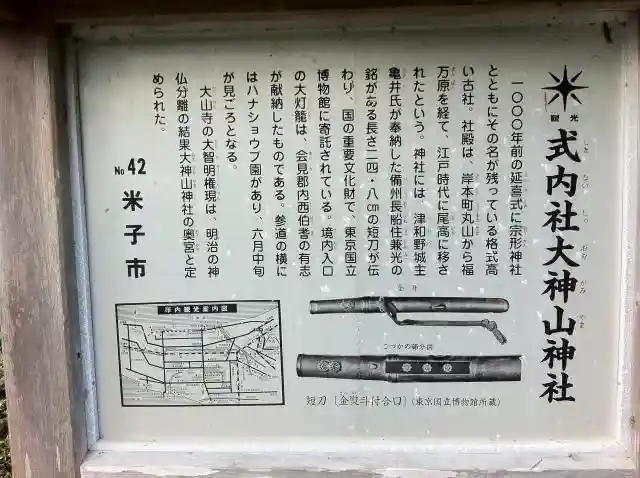 観光
式内社大神山神社
しき ない しゃ おお がみ やま
一〇〇〇年前の延喜式に宗形神社
とともにその名が残っている格式高
い古社。社殿は、岸本町丸山から福
万原を経て、江戸時代に尾高に移さ
れたという。神社には、津和野城主
亀井氏が奉納した備州長船住兼光の
銘がある長さ二四・八㎝の短刀が伝
わり、国の重要文化財で、東京国立
博物館に寄託されている。境内入口
の大灯籠は、会見郡内西伯耆の有志
が献納したものである。参道の横に
はハナショウブ園があり、六月中旬
が見ごろとなる。
大山寺の大智明権現は、明治の神
仏分離の結果大神山神社の奥宮と定
められた。
No.42
米子市
市内観光案内図
全身
こづかの部分図
短刀〔金熨斗付合口〕(東京国立博物館所蔵)